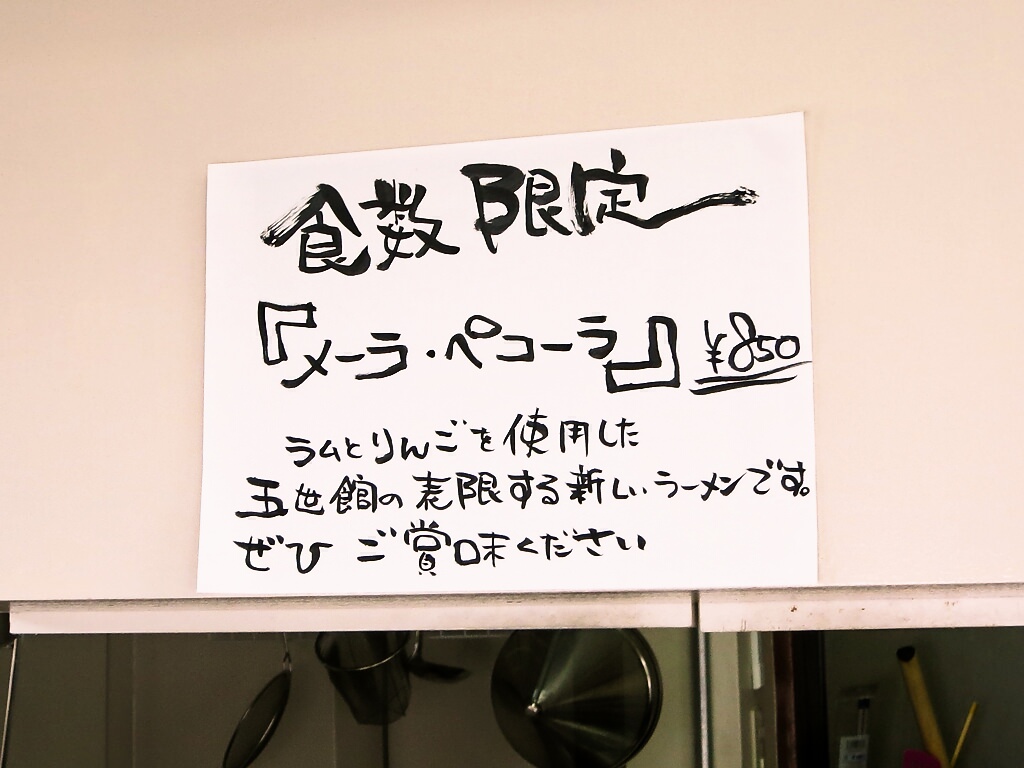 食数限定
『メーラ・ペコーラ』 ¥850
ラムとりんごを使用した
五世館の表限する新しいラーメンです。
ぜひ ご賞味ください